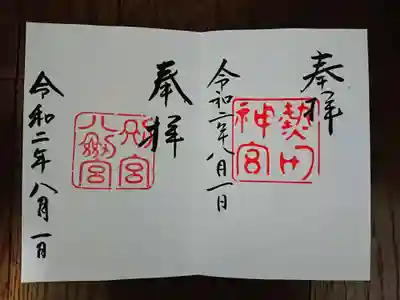 奉拝
熱田
神宮
令和二年八月一日
奉拝
別宮
八剱宮
令和二年八月一日